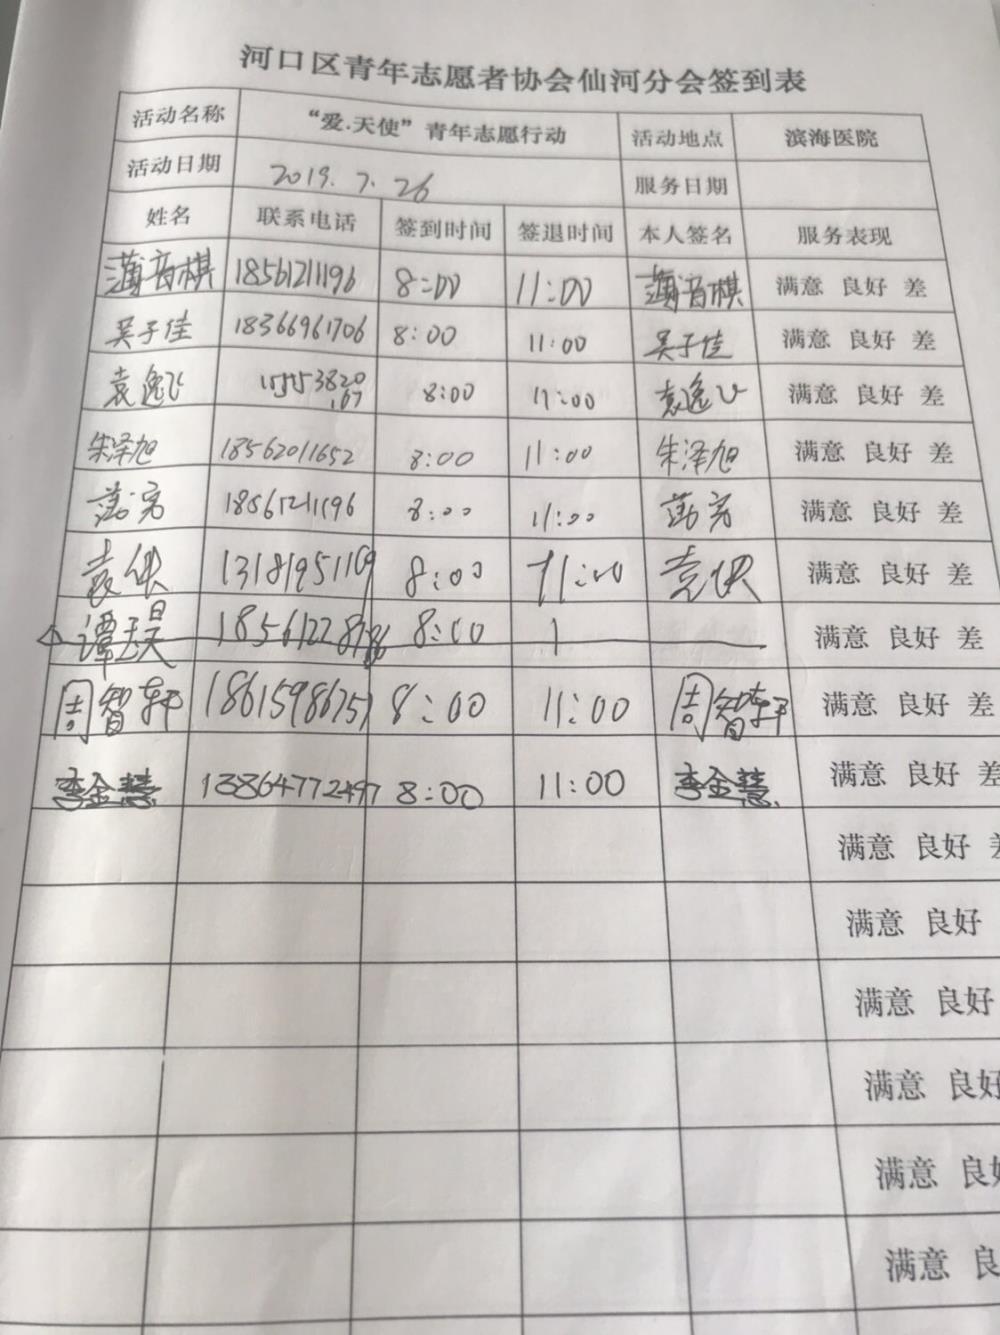 河口区青年志愿者协会仙河分会签到表
活动名称 “爱.天使”青年志愿行动 活动地点 滨海医院
活动日期 2019.7.26 服务日期
姓名 联系电话 签到时间 签退时间 本人签名 服务表现
蒲音棋 18561211196 8:00 11:00 蒲音棋 满意 良好 差
吴子佳 18366961706 8:00 11:00 吴子佳 满意 良好 差
袁逸飞 15553820167 8:00 11:00 袁逸飞 满意 良好 差
朱泽旭 18562011652 8:00 11:00 朱泽旭 满意 良好 差
18561211196 8:00 11:00 满意 良好 差
袁 13181951169 8:00 11:00 袁 满意 良好 差
谭玉昊 8:00 1 满意 良好 差
周智轩 18615986751 8:00 11:00 周智轩 满意 良好 差
李金慧 13864772497 8:00 11:00 李金慧 满意 良好 差
满意 良好 差
满意 良好
满意 良好
满意 良好
满意 良好
满意 良